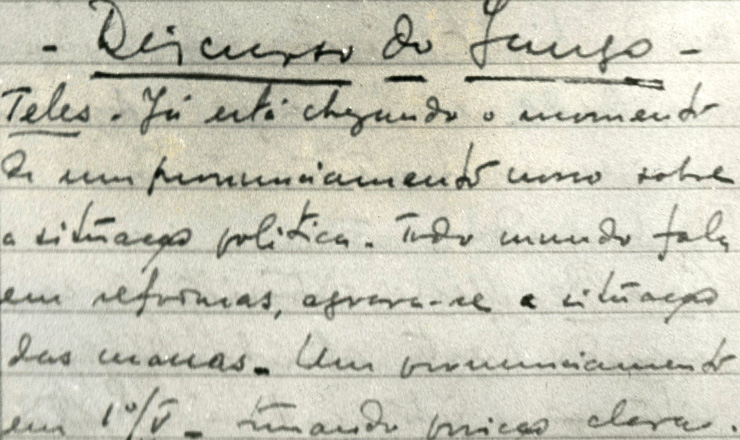 - Discurso do Jango -
Teles. Já está chegando o momento
de um pronunciamento nosso sobre
a situação política. Todo mundo fala
em reformas, agrava-se a situação
das massas. Um pronunciamento
em 1º/V - tomando posição clara.